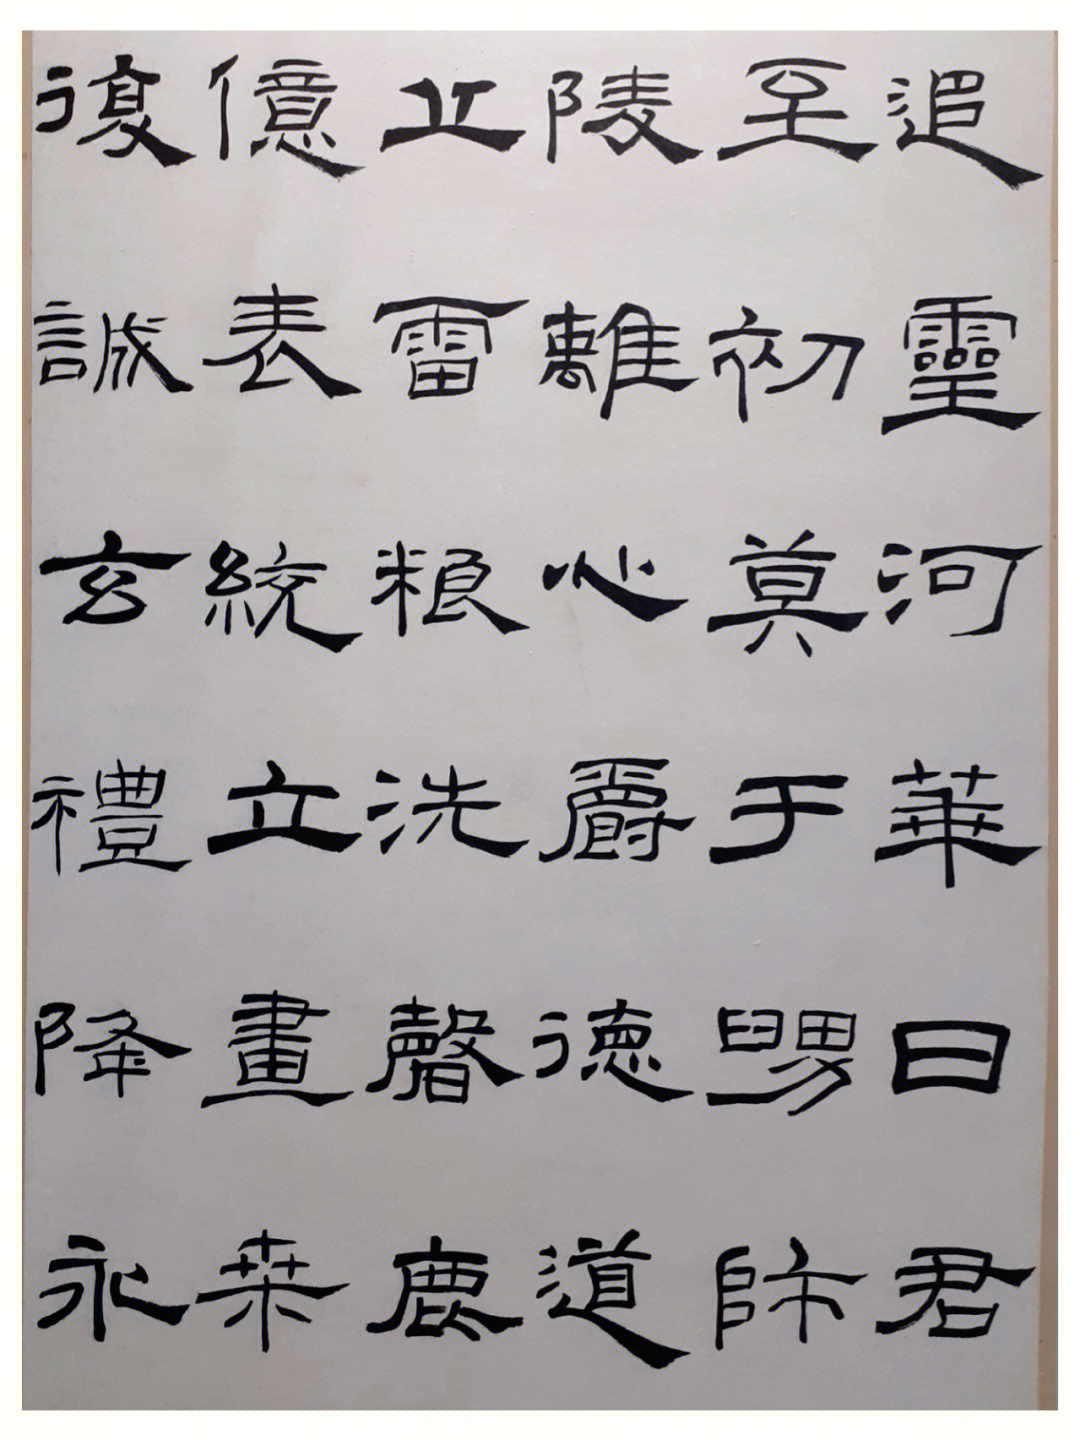 追靈河華日君
至初莫于舅師
陵離心爵德道
丘雷粮洗磬鹿
億表統立畫桑
復誠玄禮降永